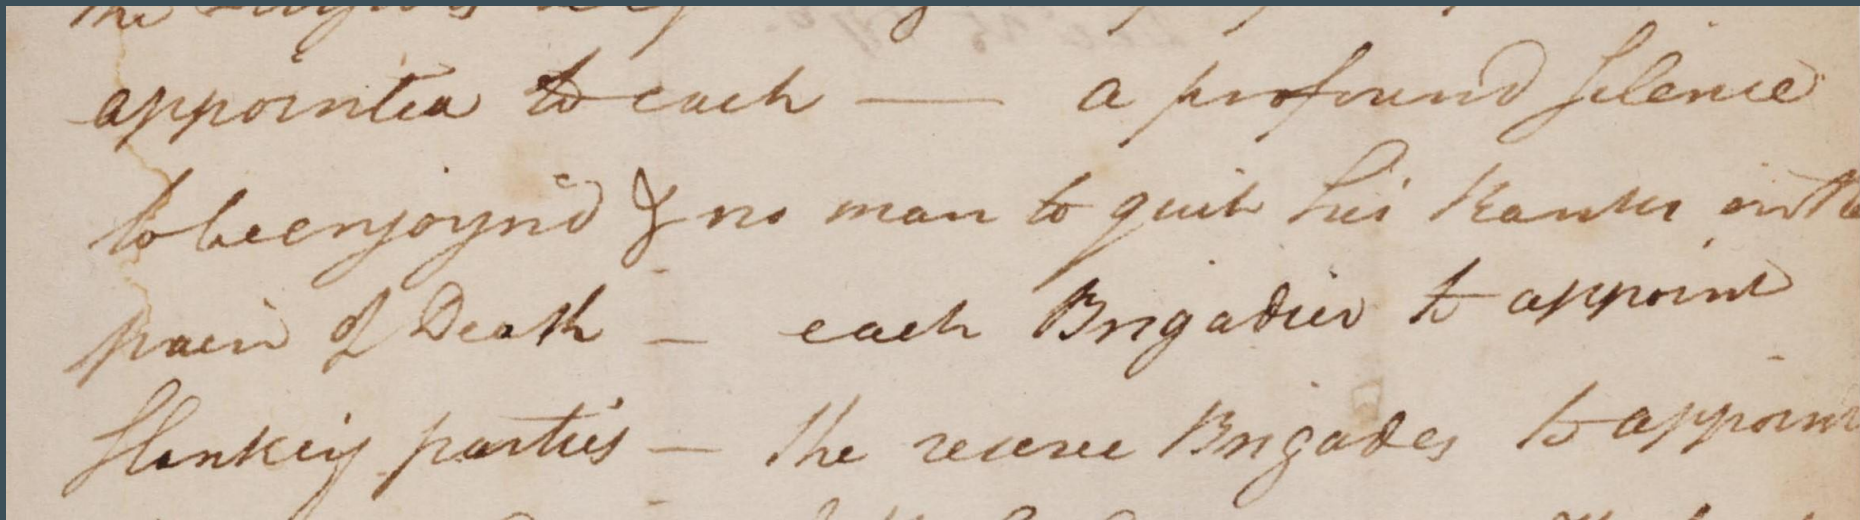 the
appointed to each — a profound Silence
to be enjoyn'd & no man to quit his Ranks on the
pain of Death — each Brigadier to appoint
flanking parties — the reserve Brigades to appoint